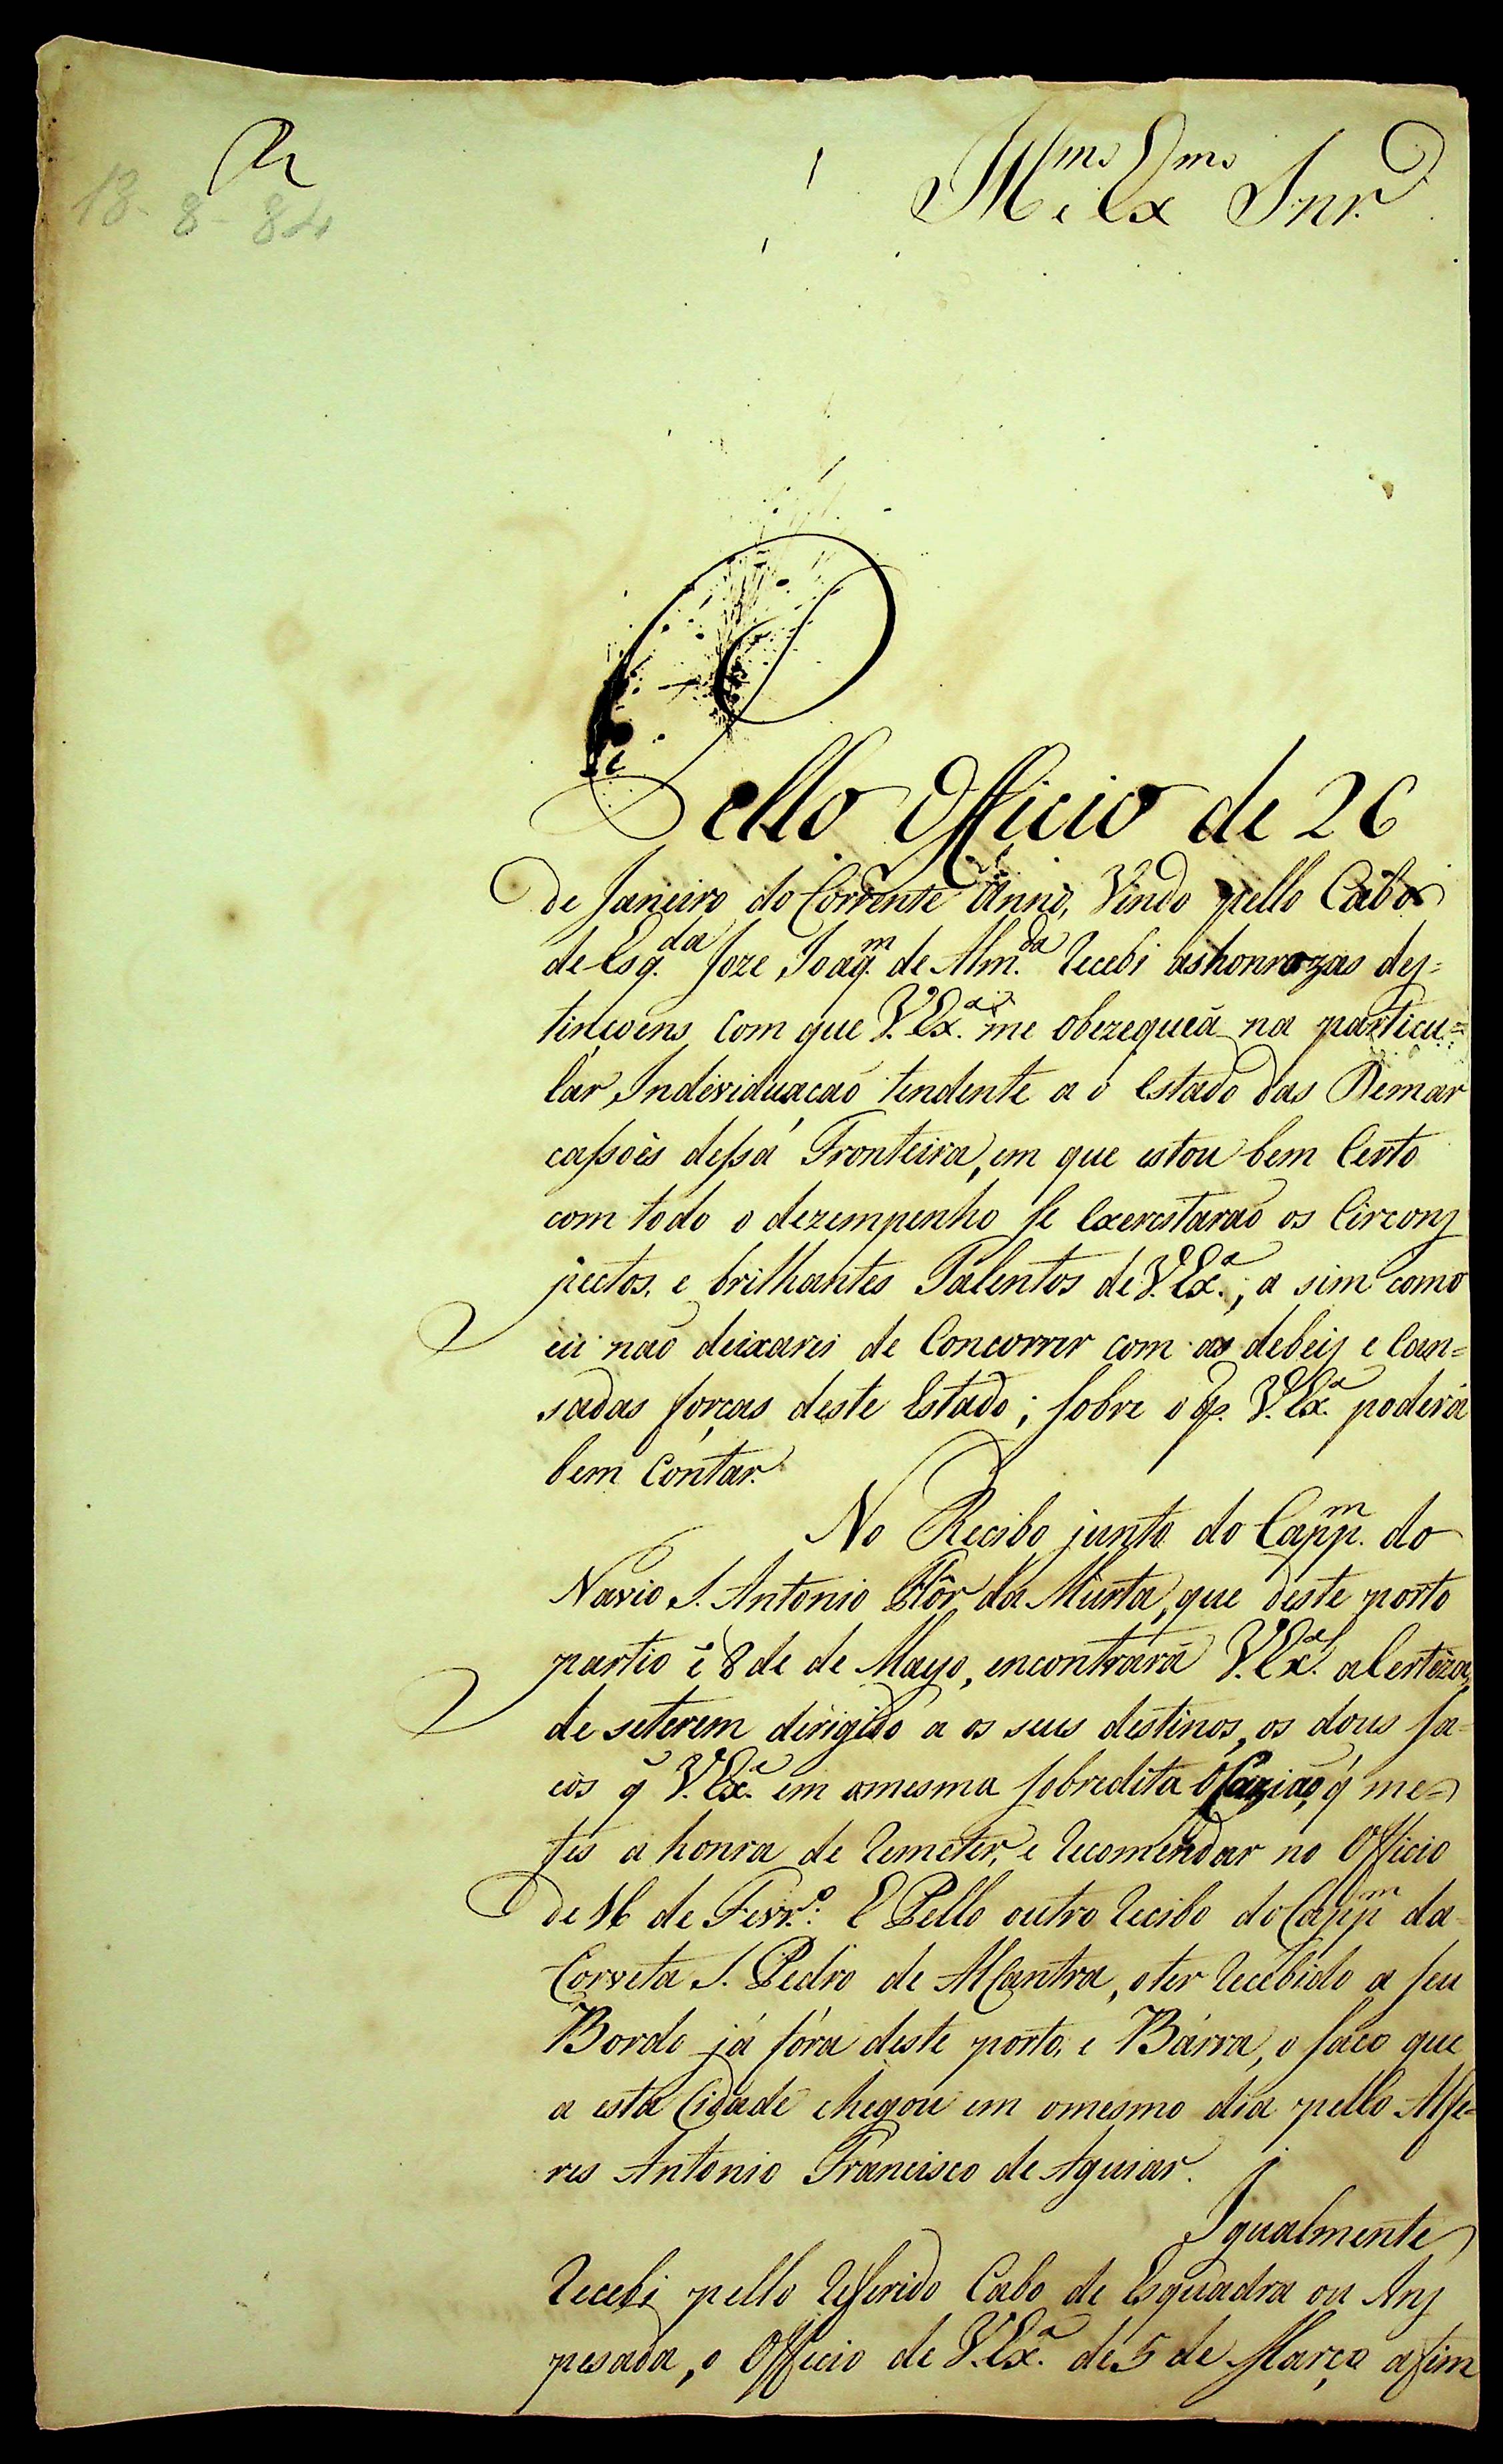 18-8-84
Ill.mo e Ex.mo Snr.
Pello Officio de 26
de Janeiro do Corrente Anno, Vindo pello Cabo
de Esq.da Joze Joaq.m de Alm.da recebi ashonrozas des=
tinçoens com que V. Ex.a me obezequeá na particu=
lár Individuacaõ tendente a o Estado das Demar
caſsoẽs deſsa Fronteira, em que estou bem Certo
com todo o dezempenho se Exercitaraõ os Circons
pectos, e brilhantes Talentos de V. Ex.a; a sim como
eu naõ deixarei de Concorrer com as debeis e Can=
sadas forças deste Estado; sobre o q. V. Ex.a poderá
bem Contar.
No Recibo junto do Capp.m do
Navio S. Antonio Flôr da Murta, que deste porto
partio ẽ 8 de de Mayo, encontrará V. Ex.a aCerteza,
de seterem dirigido a os seus destinos, os dous sa=
cos q̃ V. Ex.a em amesma sobredita Ocaziaõ, q̃ me
fes a honra de remeter, e recomendar no Officio
de 16 de Fevr.o: E Pello outro recibo do Capp.m da
Corveta S. Pedro de Alcantra, oter recebido a seu
Bordo já fóra deste porto, e Bárra, o saco que
a esta Cidade chegou em omesmo dia pello Alfe=
res Antonio Francisco de Aguiar.
Igualmente
recebi pello referido Cabo de Esquadra ou Ans
pesada, o Officio de V. Ex.a de 5 de Março aſim